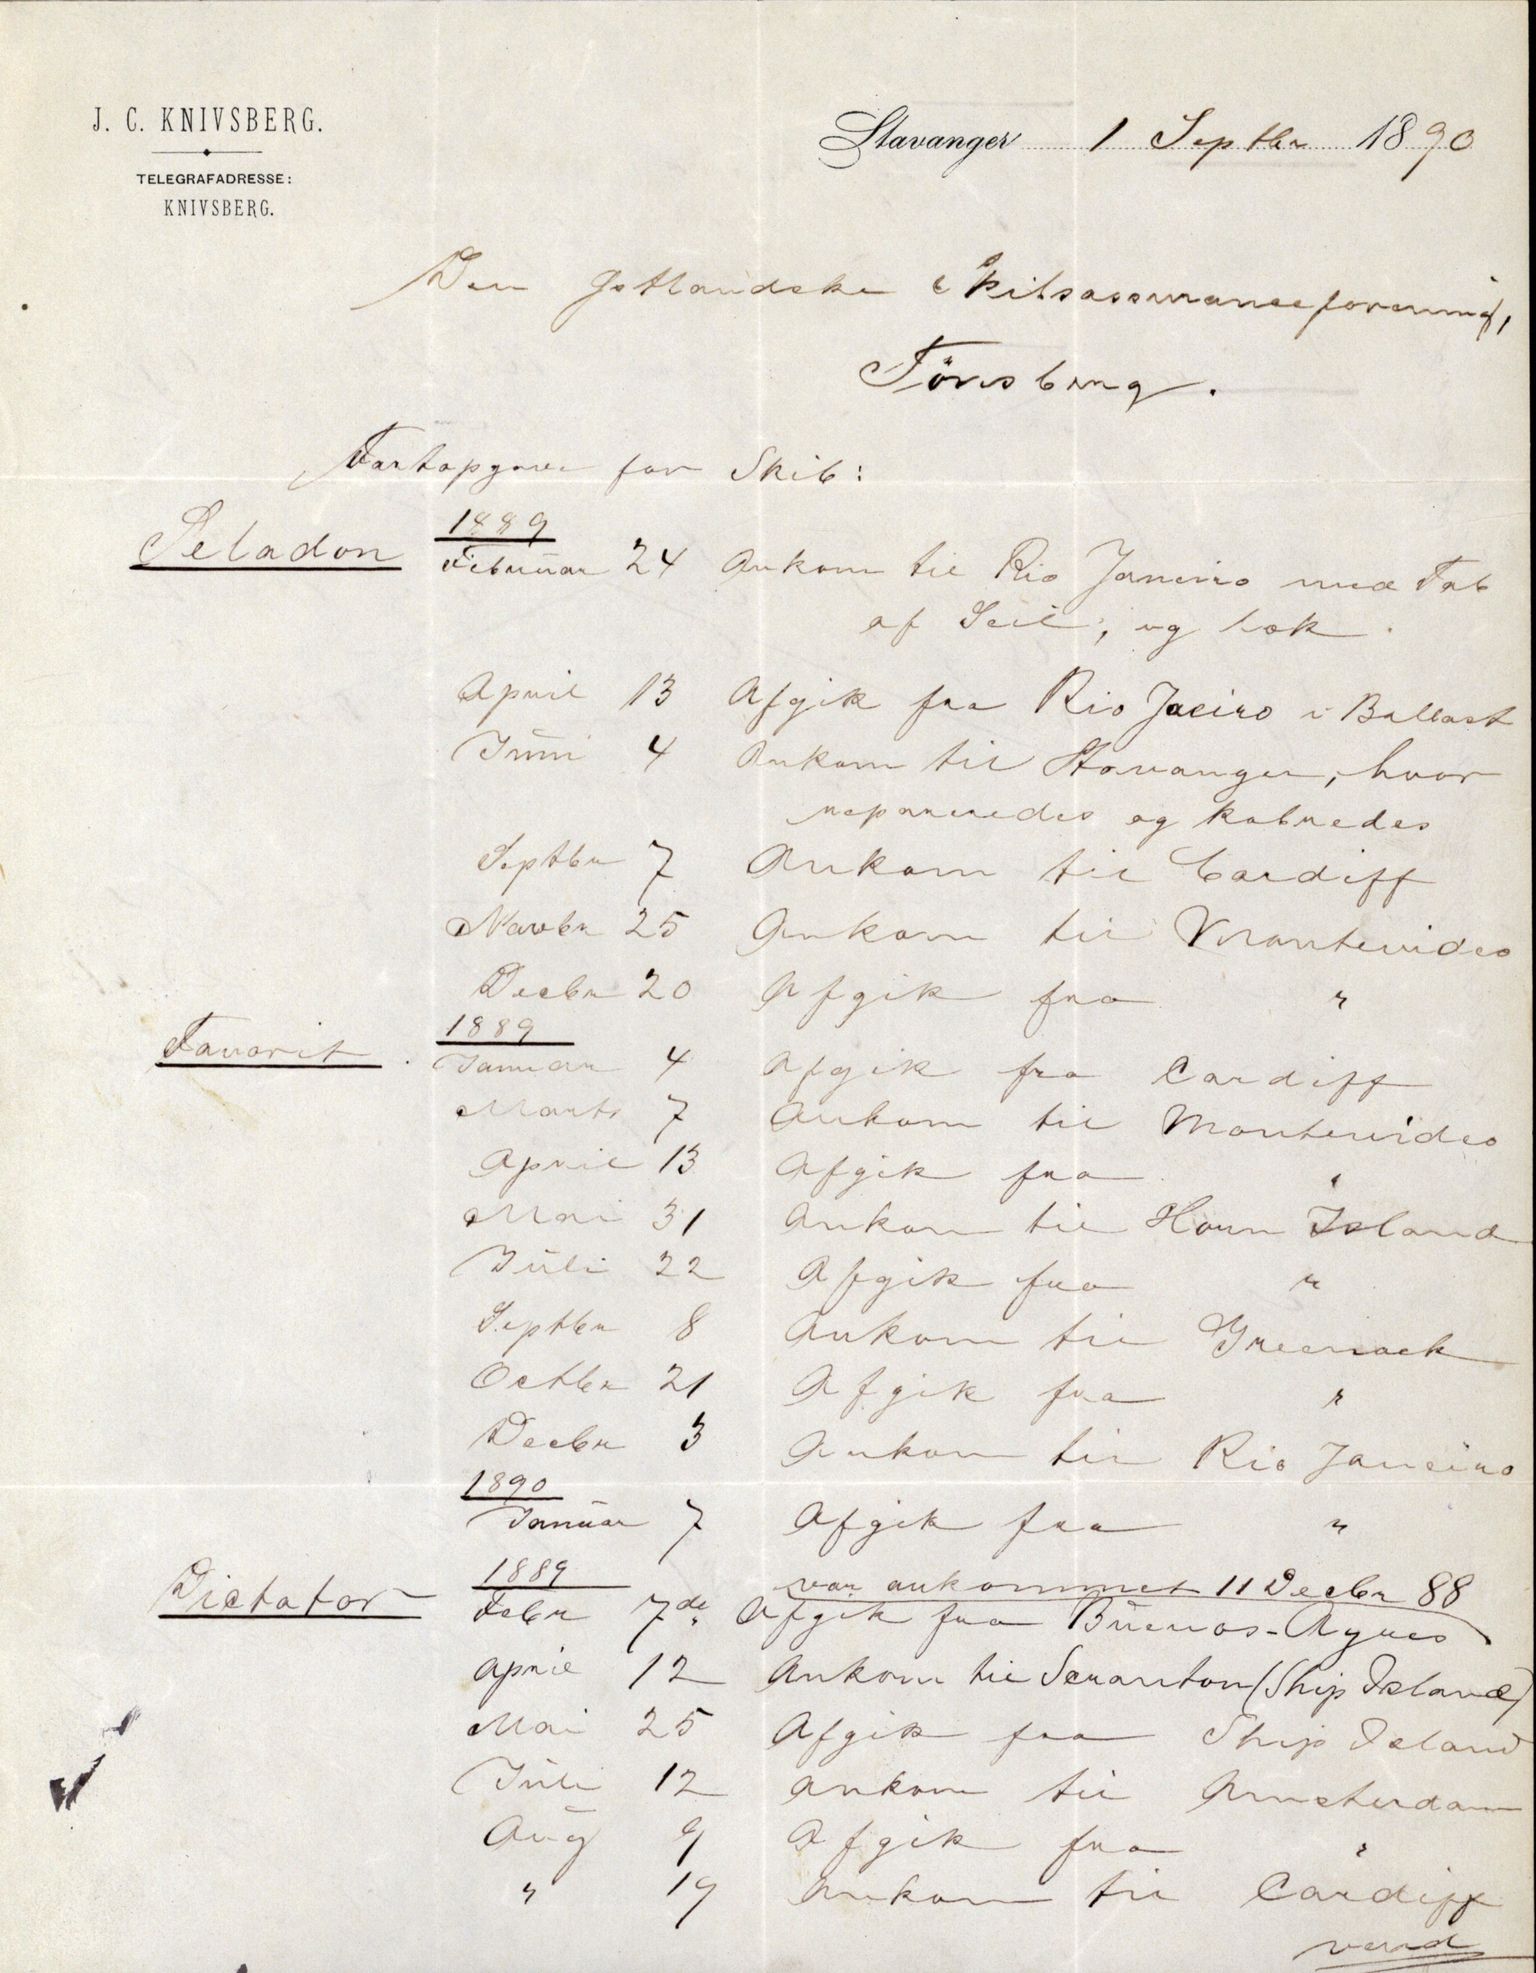 J. C. KNIVSBERG.
TELEGRAFADRESSE:
KNIVSBERG.
Stavanger 1 Septbr 1890
Den Jøtlandske Skibsassuranceforening,
Tönsberg.
Fartopgave for Skib:
Seladon
1889
Februar 24 Ankom til Rio Janeiro med Tab
af Seil, og læk.
April 13 Afgik fra Rio Jaeiro i Ballast
Juni 4 Ankom til Stavanger, hvor
repareredes og kobredes
Septbr 7 Ankom til Cardiff
Novbr 25 Ankom til Montevideo
Decbr 20 Afgik fra "
Favorit.
1889
Januar 4 Afgik fra Cardiff
Marts 7 Ankom til Montevideo
April 13 Afgik fra "
Mai 31 Ankom til Horn Island
Juli 22 Afgik fra "
Septbr 8 Ankom til Greenock
Octbr 21 Afgik fra "
Decbr 3 Ankom til Rio Janeiro
1890
Januar 7 Afgik fra "
Dictator
1889 var ankommet 11 Decbr 88
Febr 7de Afgik fra Buenos-Ayres
April 12 Ankom til Scranton (Ship Island)
Mai 25 Afgik fra Ship Island
Juli 12 Ankom til Amsterdam
Aug 9 Afgik fra "
" 19 Ankom til Cardiff
vend